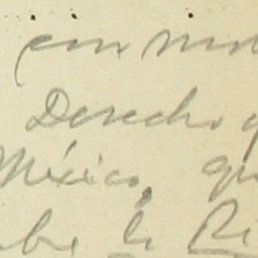 con mot
Derecho y
México, qu
abe la Ri